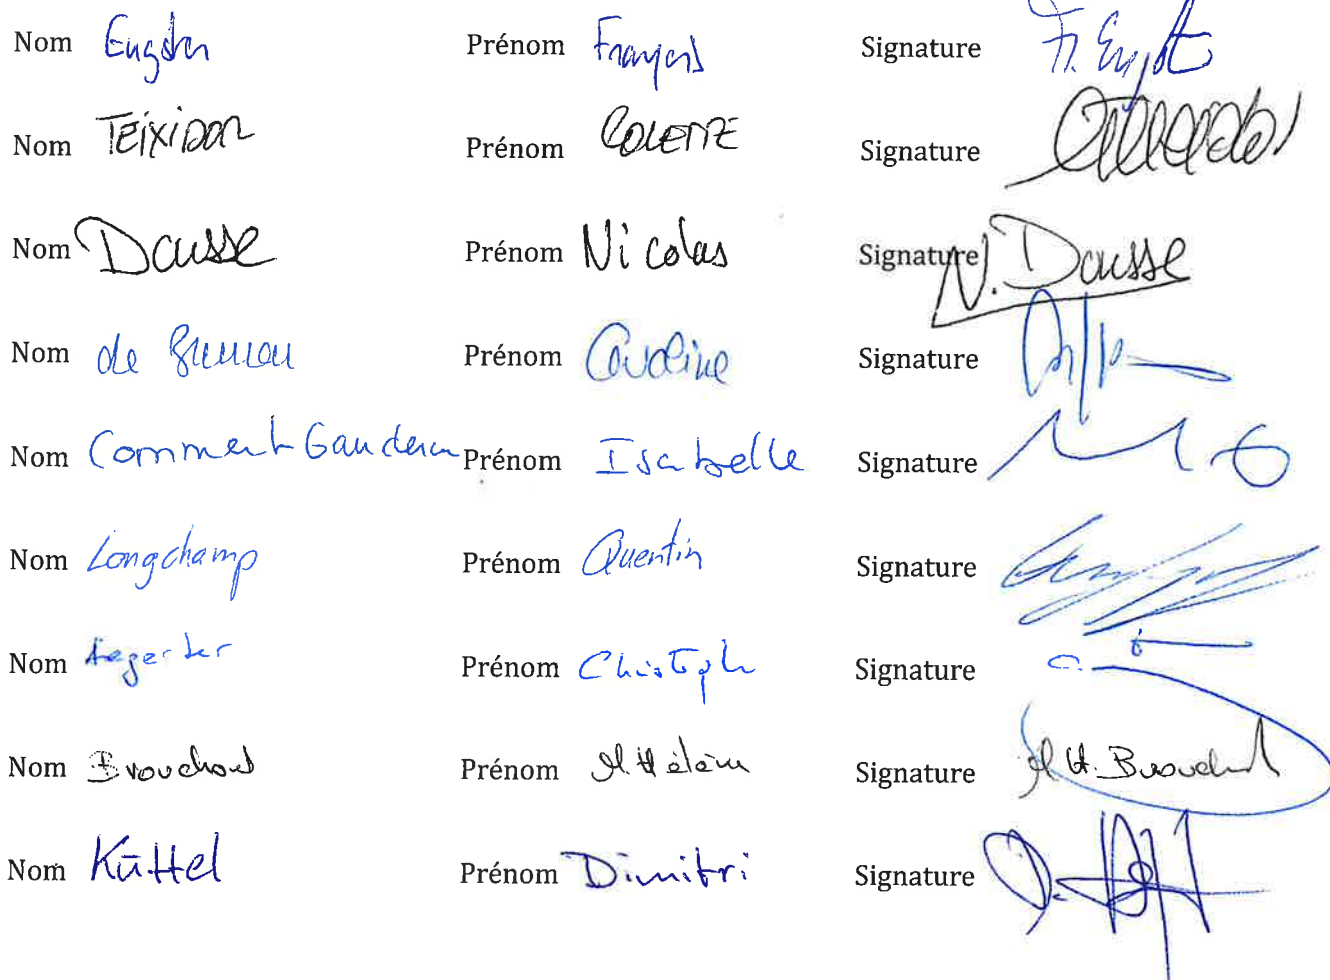 Nom Engster Prénom François Signature F. Engst
Nom TEIXIDOR Prénom COLETTE Signature
Nom Dousse Prénom Nicolas Signature N. Dousse
Nom de Prénom Caroline Signature
Nom Comment Gauderon Prénom Isabelle Signature
Nom Longchamp Prénom Quentin Signature
Nom Aegerter Prénom Christoph Signature
Nom Brouchoud Prénom M. Hélène Signature M H. Brouchoud
Nom Küttel Prénom Dimitri Signature